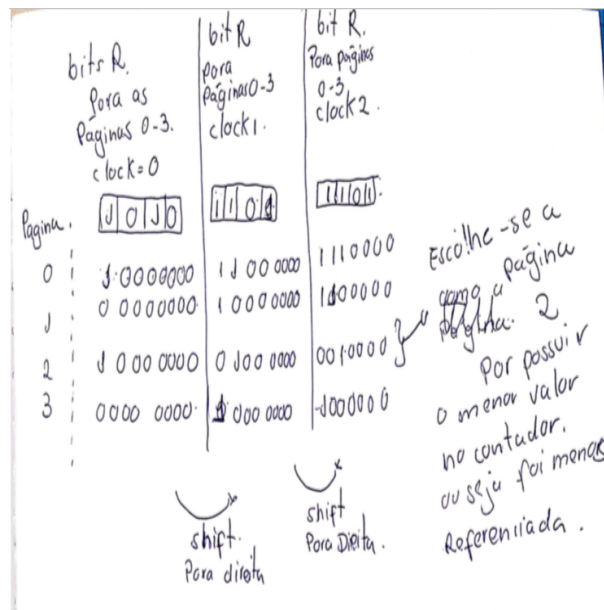 bits R.
Para as
Páginas 0-3.
clock=0
1 0 1 0
bit R
para
Páginas 0-3
clock 1.
1 1 0 1
bit R.
Para páginas
0-3
clock 2.
1 1 0 1
Pagina.
0 1 0000000 1 1 00 0000 1 1 1 0000
1 0 0000000 1 0 00 0000 1 1 00000
2 1 000 0000 0 1 00 0000 0 0 1 0000
3 0000 0000 1 000 0000 1 000000
shift.
Para direita
shift
Para Direita.
Escolhe-se a
página
como a
Página. 2
Por possuir
o menor valor
no contador.
ou seja foi menos
Referenciada.